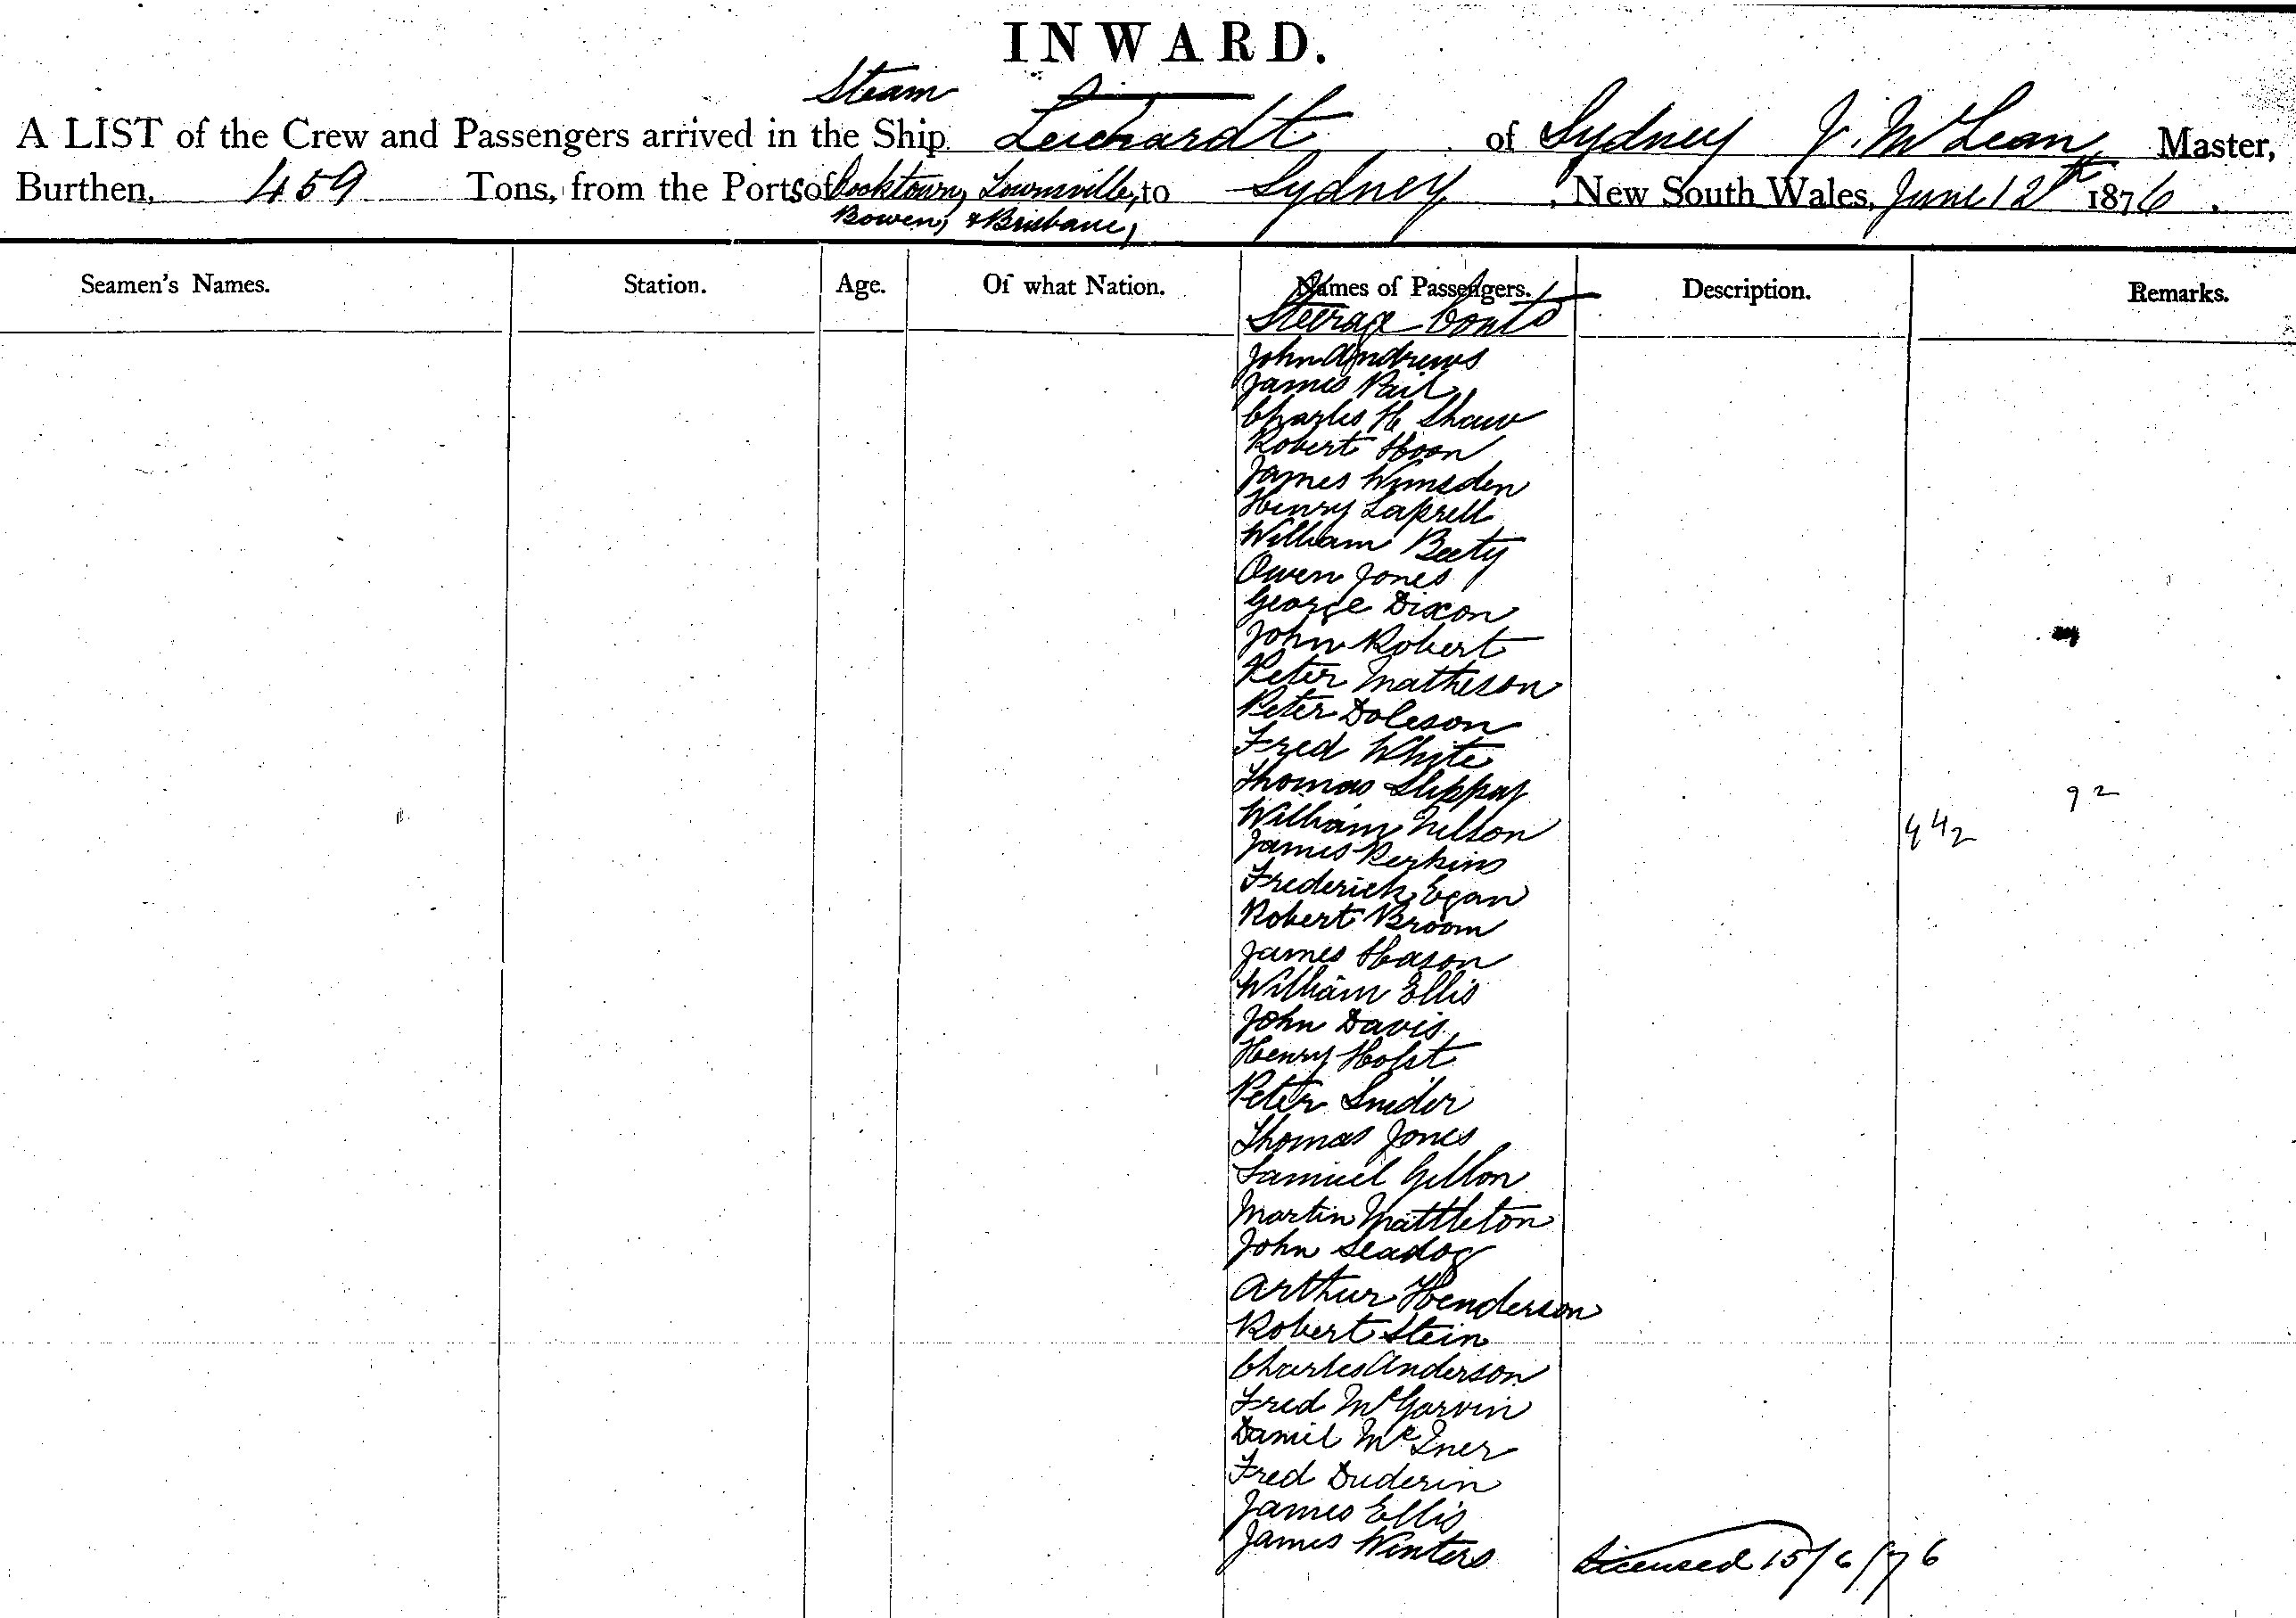 INWARD.
Steam
A LIST of the Crew and Passengers arrived in the Ship Leichardt of Sydney J. McLean, Master,
Burthen, 459 Tons, from the Ports of Cooktown, Townsville, to Sydney, New South Wales, June 12th 1876.
Bowen, & Brisbane,
Seamen's Names. Station. Age. Of what Nation. Names of Passengers. Description. Remarks.
Steerage Contd
John Andrews
James Pail
Charles H Shaw
Robert Hoon
James Wimsden
Henry Laprell
William Beety
Owen Jones
George Dixon
John Robert
Peter Matheson
Peter Doleson
Fred White
Thomas
William Nelson
James Perkins
Frederick Egan
Robert Broom
James Hason
William Ellis
John Davis
Henry Holst
Peter Snider
Thomas Jones
Samuel Gillon
Martin Mattleton
John Seadog
Arthur Henderson
Robert Stein
Charles Anderson
Fred McGarvin
Daniel McIner
Fred Duderin
James Ellis
James Winters
92
442
Licensed 15/6/76